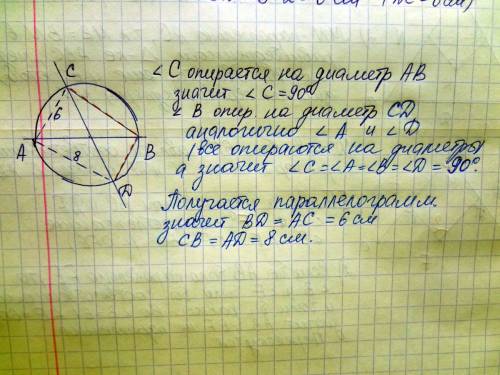 C
∠C опирается на диаметр AB
значит ∠C = 90°
∠B опир. на диаметр CD
аналогично ∠A и ∠D
(все опираются на диаметры)
а значит ∠C=∠A=∠B=∠D = 90°.
6
A
8
B
D
Получается параллелограмм.
значит BD = AC = 6 см
CB = AD = 8 см.